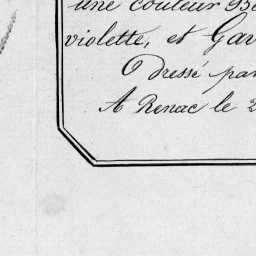 une couleur
violette, et
Dressé par
A Renac le 2